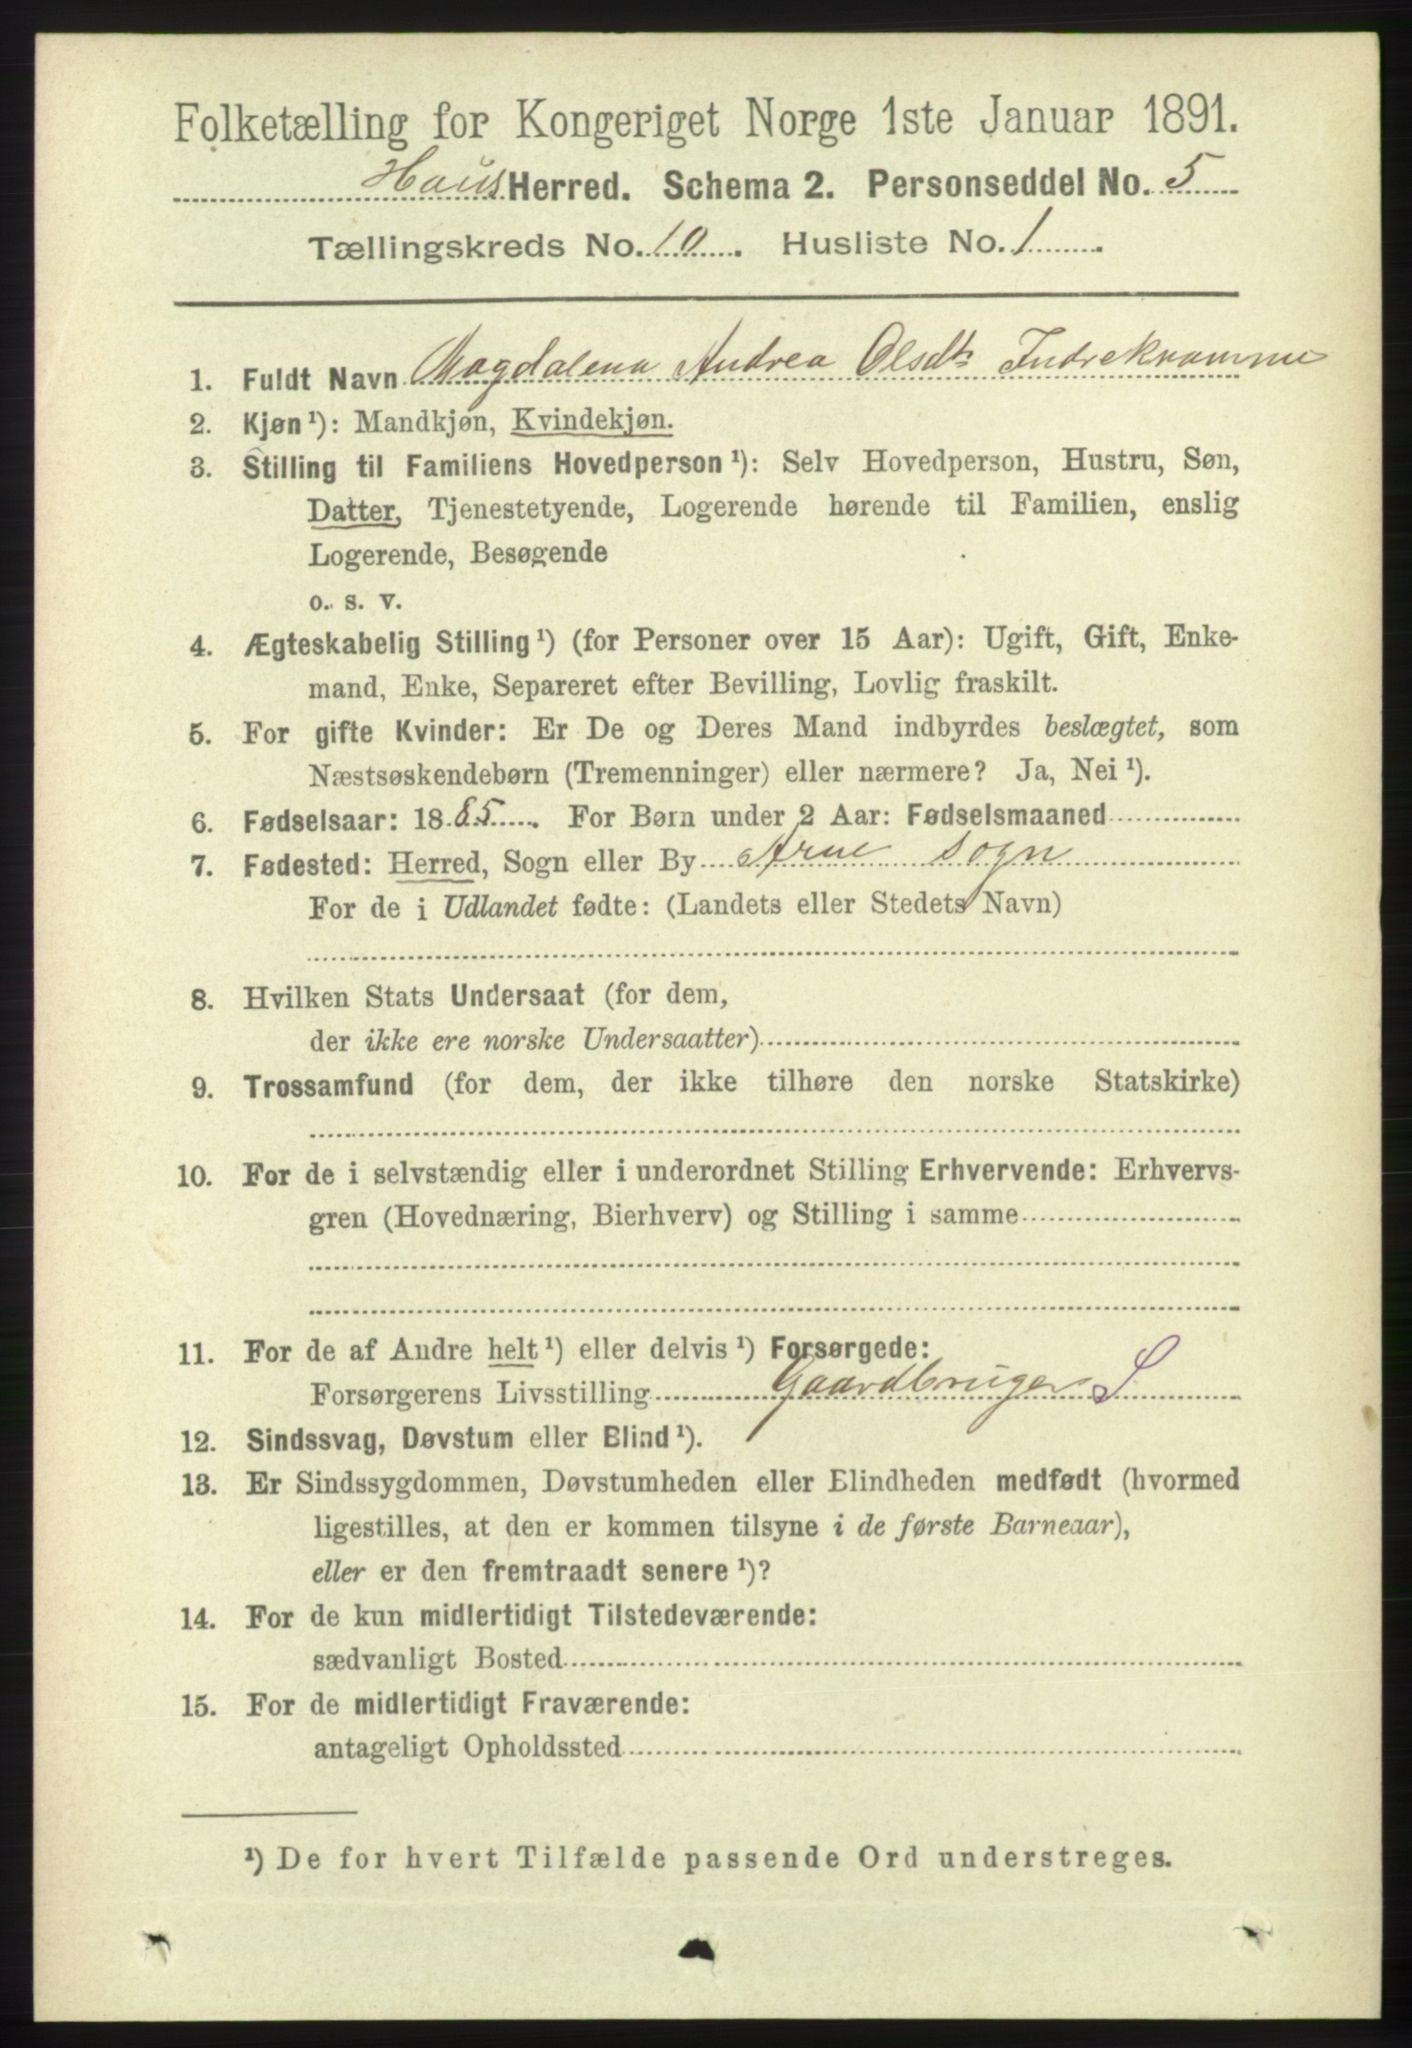 Folketælling for Kongeriget Norge 1ste Januar 1891.
Haus Herred. Schema 2. Personseddel No. 5
Tællingskreds No. 10. Husliste No. 1.
1. Fuldt Navn Magdalena Andrea Olsdt. Indrekvamme
2. Kjøn ¹): Mandkjøn, Kvindekjøn.
3. Stilling til Familiens Hovedperson ¹): Selv Hovedperson, Hustru, Søn,
Datter, Tjenestetyende, Logerende hørende til Familien, enslig
Logerende, Besøgende
o. s. v.
4. Ægteskabelig Stilling ¹) (for Personer over 15 Aar): Ugift, Gift, Enke-
mand, Enke, Separeret efter Bevilling, Lovlig fraskilt.
5. For gifte Kvinder: Er De og Deres Mand indbyrdes beslægtet, som
Næstsøskendebørn (Tremenninger) eller nærmere? Ja, Nei ¹).
6. Fødselsaar: 1885. For Børn under 2 Aar: Fødselsmaaned
7. Fødested: Herred, Sogn eller By Arne Sogn
For de i Udlandet fødte: (Landets eller Stedets Navn)
8. Hvilken Stats Undersaat (for dem,
der ikke ere norske Undersaatter)
9. Trossamfund (for dem, der ikke tilhøre den norske Statskirke)
10. For de i selvstændig eller i underordnet Stilling Erhvervende: Erhvervs-
gren (Hovednæring, Bierhverv) og Stilling i samme
11. For de af Andre helt ¹) eller delvis ¹) Forsørgede:
Forsørgerens Livsstilling Gaardbruger S
12. Sindssvag, Døvstum eller Blind ¹).
13. Er Sindssygdommen, Døvstumheden eller Blindheden medfødt (hvormed
ligestilles, at den er kommen tilsyne i de første Barneaar),
eller er den fremtraadt senere ¹)?
14. For de kun midlertidigt Tilstedeværende:
sædvanligt Bosted
15. For de midlertidigt Fraværende:
antageligt Opholdssted
¹) De for hvert Tilfælde passende Ord understreges.